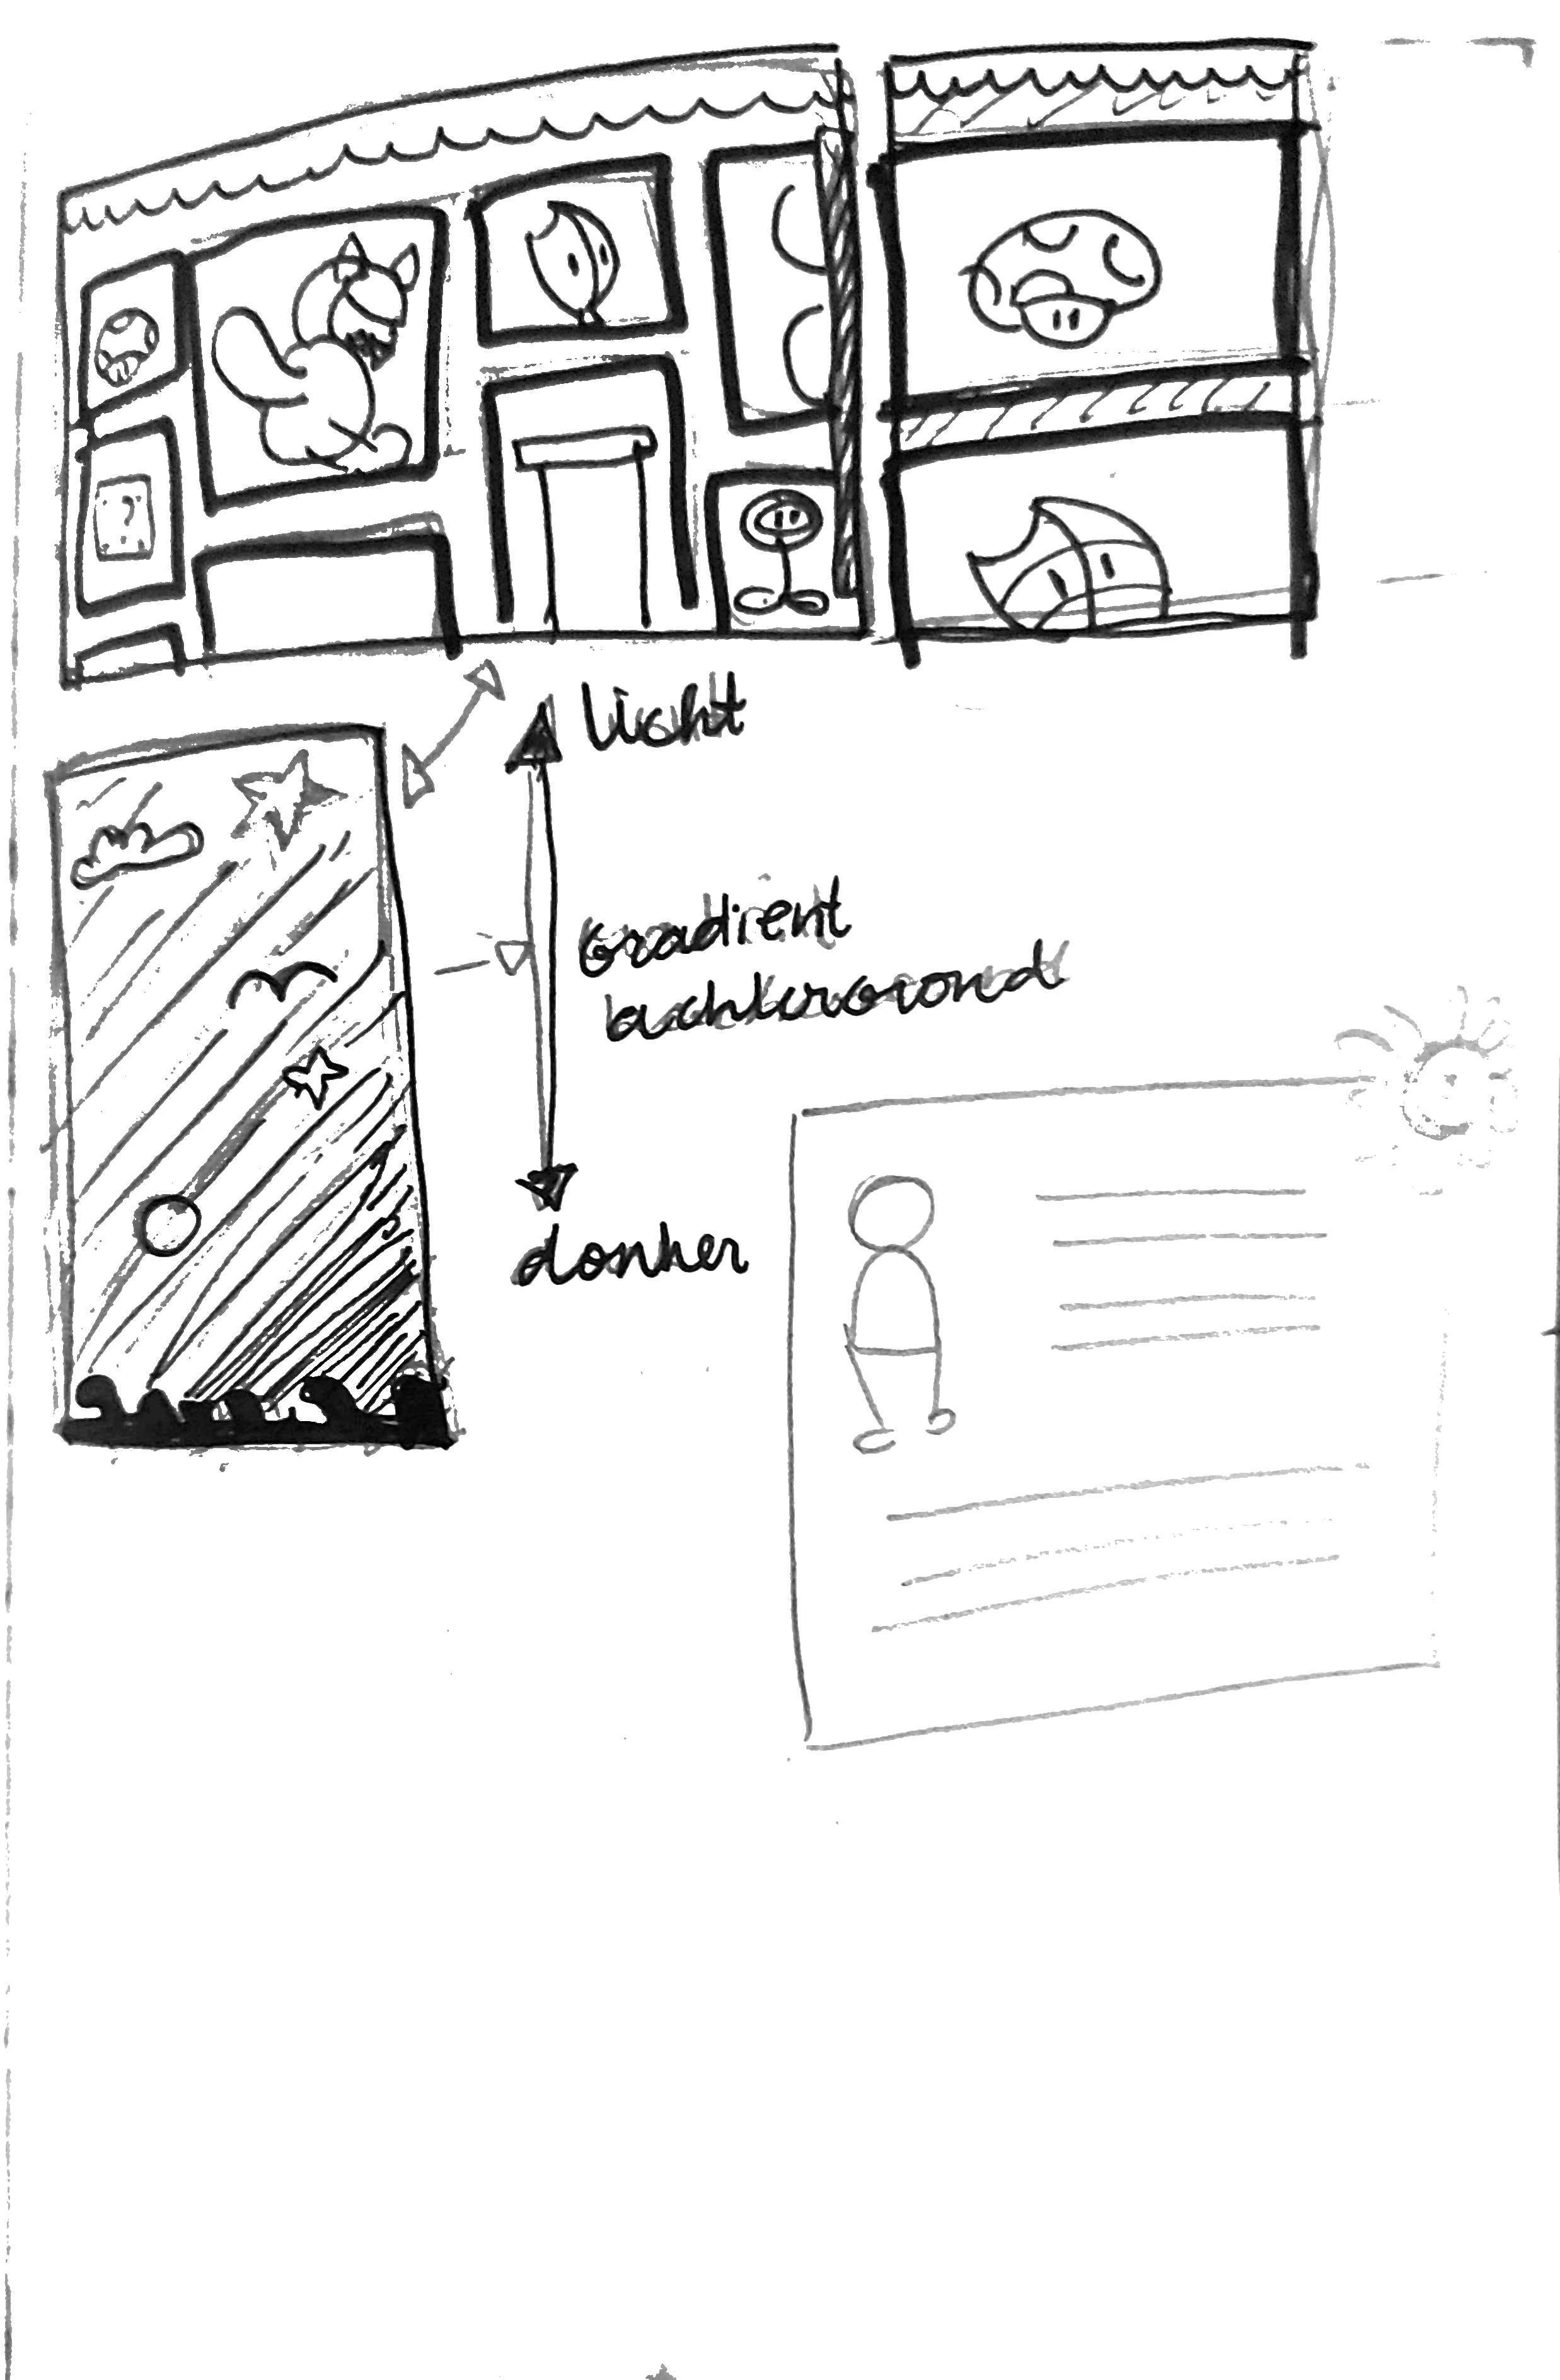 ?
licht
Gradient
achtergrond
donker